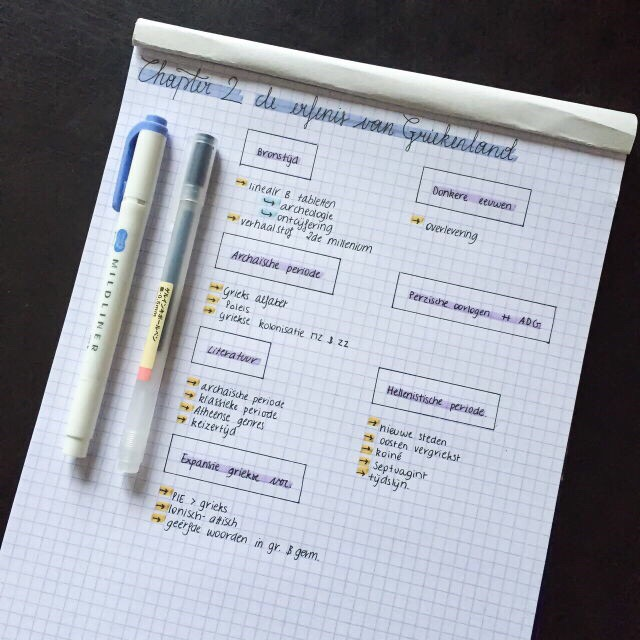 Chapter 2 de erfenis van Griekenland
Bronstijd
→ lineair B tabletten
↳ archeologie
↳ ontcijfering
→ verhaalstof 2de millenium
Donkere eeuwen
→ overlevering
Archaische periode
→ Grieks alfabet
→ Poleis
→ Griekse kolonisatie MZ & ZZ
Perzische oorlogen ↔ ADG
Literatuur
→ archaische periode
→ klassieke periode
→ Atheense genres
→ keizertijd
Hellenistische periode
→ nieuwe steden
→ oosten vergriekst
→ koiné
→ Septuagint
→ tijdslijn.
Expansie griekse
→ PIE > grieks
→ Ionisch-attisch
→ geërfde woorden in gr. & germ.
MILDLINER